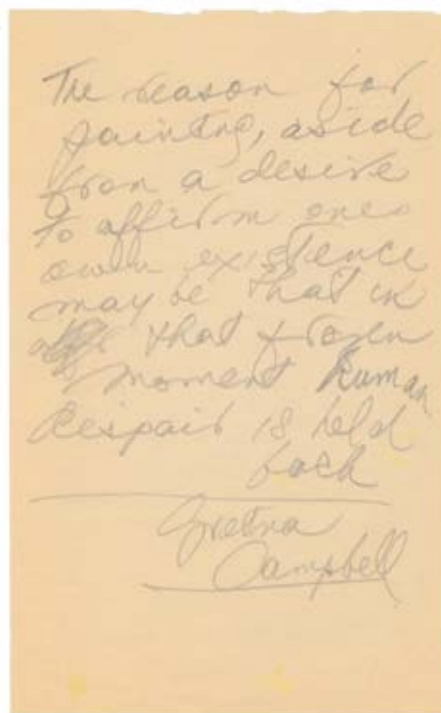 The reason for
painting, aside
from a desire
to affirm ones
own existence
may be that in
that frozen
moment human
despair is held
back
Gretna
Campbell